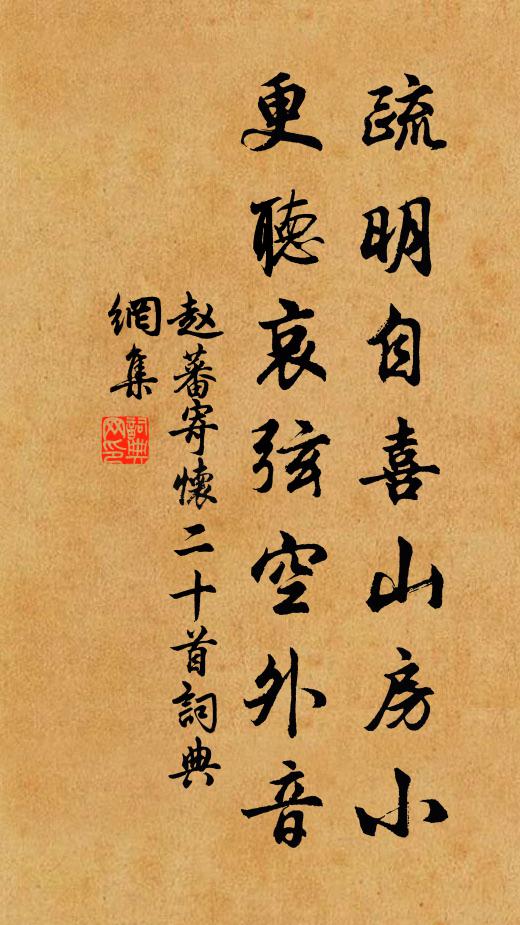 疏明自喜山房小
更聽哀弦空外音
赵蕃寄懷二十首詞典
網集
詞典
网印